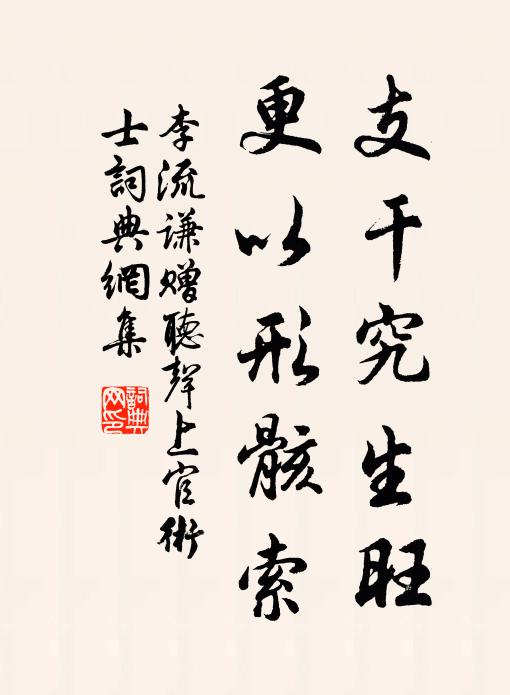 支干究生旺
更以形骸索
李流谦赠聽聲上官術
士詞典網集
詞典网印